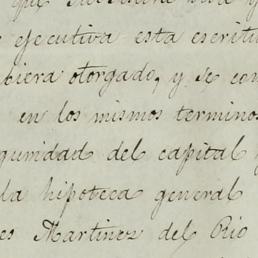 ejecutiva esta escritu
biera otorgado, y se con
en los mismos terminos
guridad del capital
la hipoteca general
es Martinez del Rio